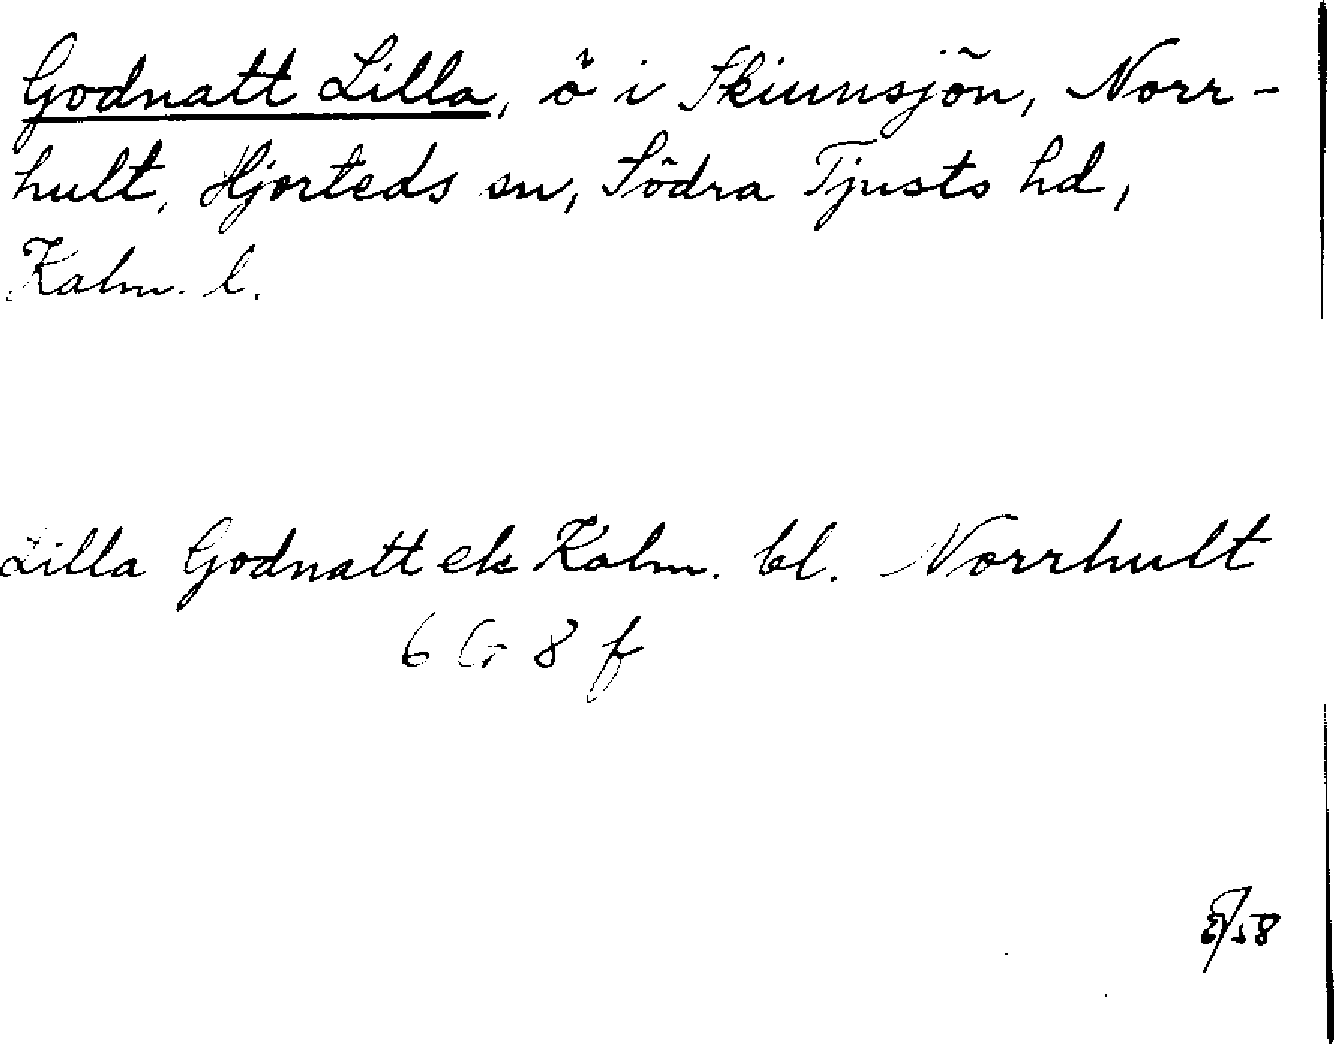 Godnatt Lilla, ö i Skiunsjön, Norr-
hult, Hjorteds sn, Södra Tjusts hd,
Kalm. l.
Lilla Godnatt ek Kalm. bl. Norrhult
6 G 8 f